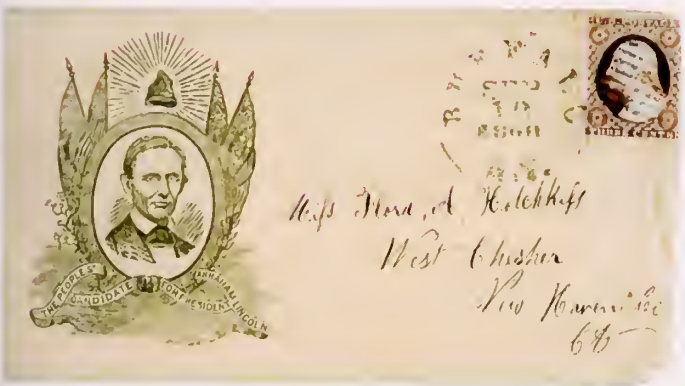 THE PEOPLES' CANDIDATE FOR PRESIDENT ABRAHAM LINCOLN
THREE CENTS
Miss Flora A Hotchkiss
West Cheshire
New Haven Co
Ct